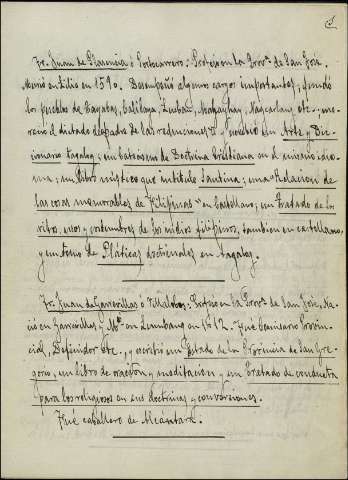 Fr. Juan de Plasencia ó Portocarrero: Profesó en la Provª de San José.
Murió en Lilio en 1590. Desempeñó algunos cargos importantes, fundó
los pueblos de Tayabas, Calilaya, Lucban, Mahayhay, Nagcarlan, etc.
recio el dictado de padre de las reducciones y escribió un Arte y Dic-
cionario tagalog; un Catecismo de Doctrina Cristiana en el mismo idio-
ma; un libro místico que intituló Santina; una "Relacion de
las cosas memorables de Filipinas" en Castellano; un Tratado de los
ritos, usos y costumbres de los indios filipinos, tambien en castellano,
y un tomo de Pláticas doctrinales en tagalog.
Fr. Juan de Garrovillas ó Villalobos. Profesó en la Provª de San José, Na-
ció en Garrovillas y Mº en Lumbang en 1612. Fué Comisario Provin-
cial, Definidor etc., y escribió un Estado de la Provincia de San Gre-
gorio, un libro de oracion y meditacion y un Tratado de conducta
para los religiosos en sus doctrinas y conversiones.
Fué caballero de Alcántara.